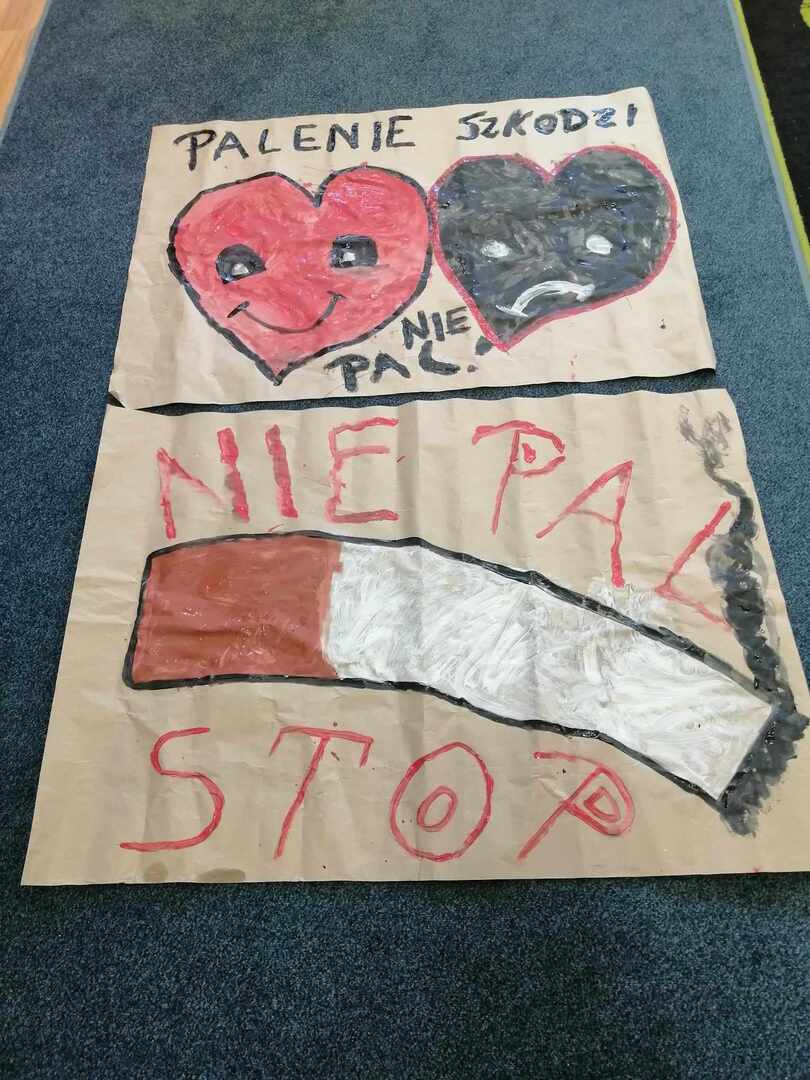 PALENIE SZKODZI
NIE
PAL!
NIE PAL
STOP